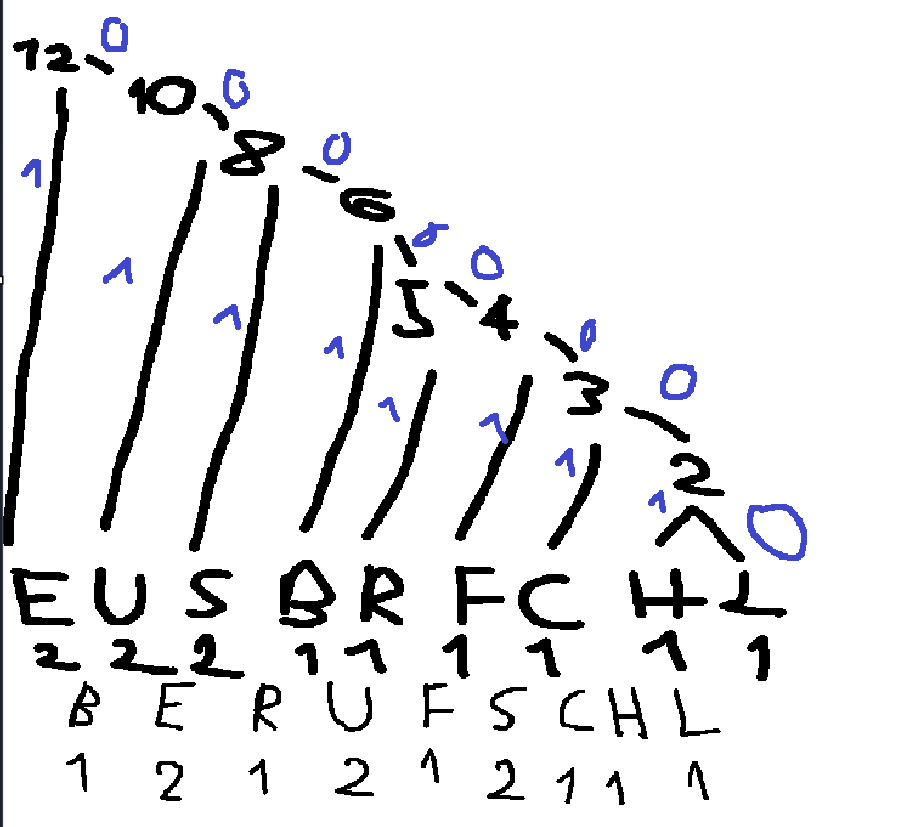 0
12
0
10
0
8
0
6
0
5
0
4
0
3
0
2
0
1
1
1
1
1
1
1
1
E U S B R F C H L
2 2 2 1 1 1 1 1 1
B E R U F S C H L
1 2 1 2 1 2 1 1 1